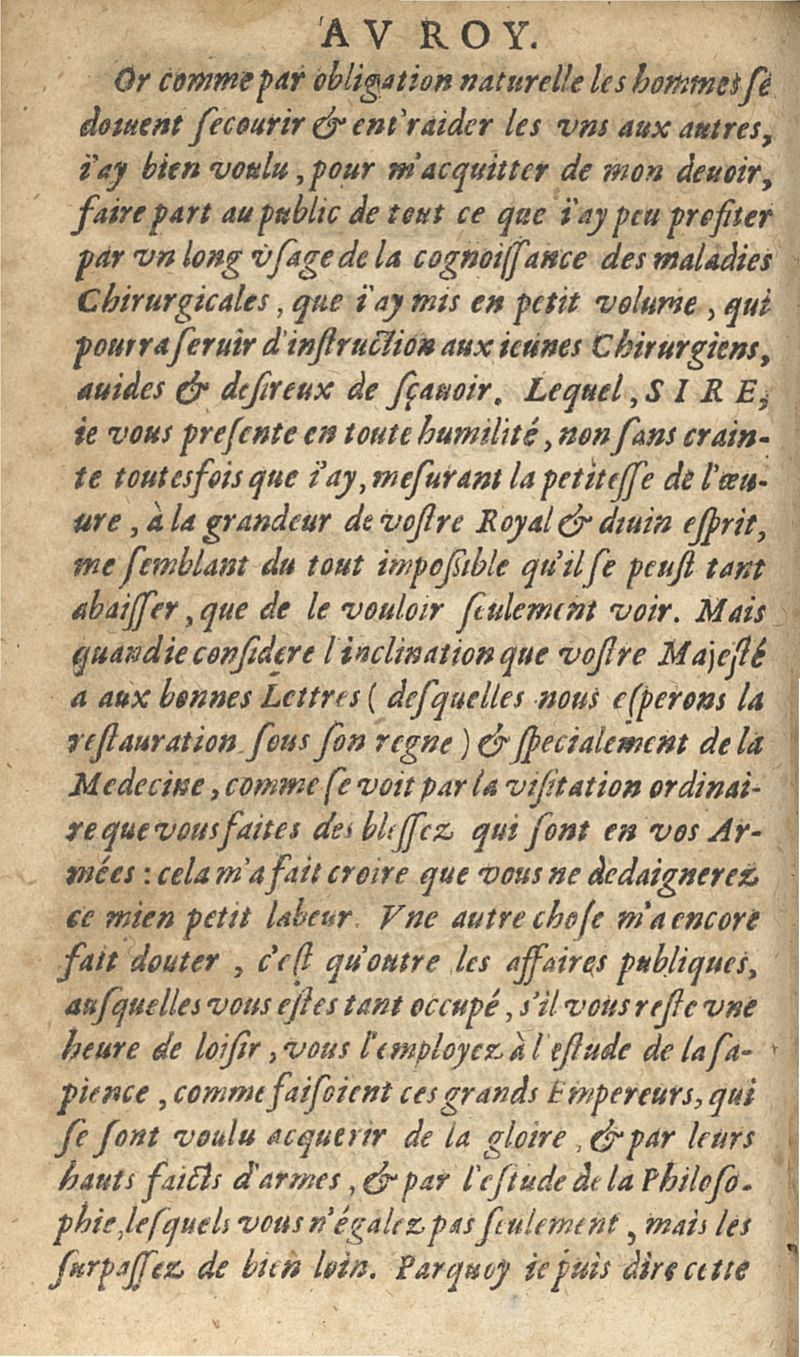 AV ROY.
Or comme par obligation naturelle les hommes se
doiuent secourir & ent'raider les vns aux autres,
i'ay bien voulu, pour m'acquitter de mon deuoir,
faire part au public de tout ce que i'ay peu profiter
par vn long vsage de la cognoissance des maladies
Chirurgicales, que i'ay mis en petit volume, qui
pourra seruir d'instruction aux ieunes Chirurgiens,
auides & desireux de sçauoir. Lequel, SIRE,
ie vous presente en toute humilité, non sans crain-
te toutesfois que i'ay, mesurant la petitesse de l'œu-
ure, à la grandeur de vostre Royal & diuin esprit,
me semblant du tout impossible qu'il se peust tant
abaisser, que de le vouloir seulement voir. Mais
quand ie considere l'inclination que vostre Majesté
a aux bonnes Lettres (desquelles nous esperons la
restauration sous son regne) & specialement de la
Medecine, comme se voit par la visitation ordinai-
re que vous faites des blessez qui sont en vos Ar-
mées: cela m'a fait croire que vous ne dedaignerez
ce mien petit labeur. Vne autre chose m'a encore
fait douter, c'est qu'outre les affaires publiques,
ausquelles vous estes tant occupé, s'il vous reste vne
heure de loisir, vous l'employez à l'estude de la sa-
pience, comme faisoient ces grands Empereurs, qui
se sont voulu acquerir de la gloire, & par leurs
hauts faicts d'armes, & par l'estude de la Philoso-
phie, lesquels vous n'égalez pas seulement, mais les
surpassez de bien loin. Parquoy ie puis dire cette